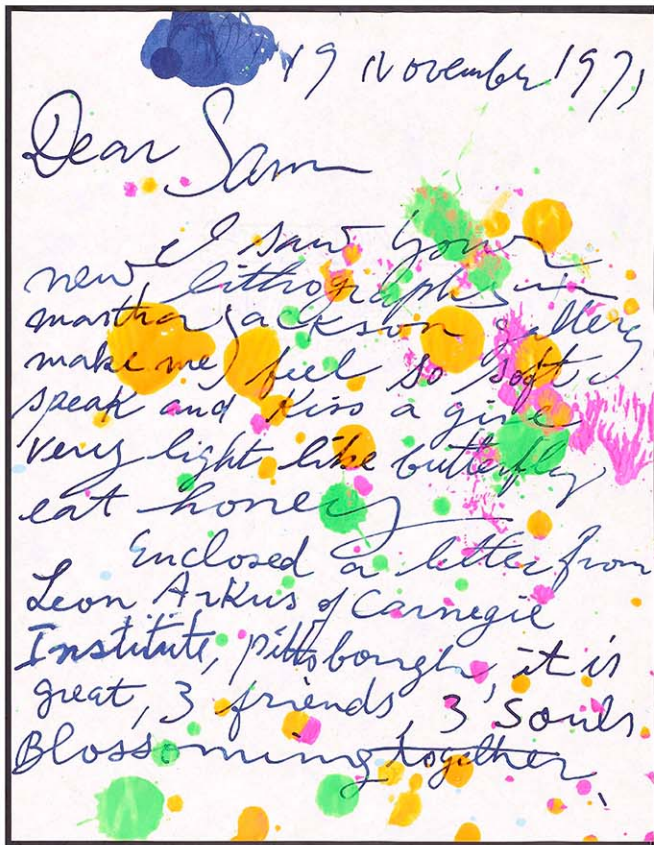 19 November 1971
Dear Sam
I saw your
new lithographs in
martha jackson gallery
make me feel so soft
speak and Kiss a girl
very light like butterfly
eat honey
Enclosed a letter from
Leon Arkus of Carnegie
Institute, pittsbourgh, it is
great, 3 friends, 3 souls
Blossoming together,